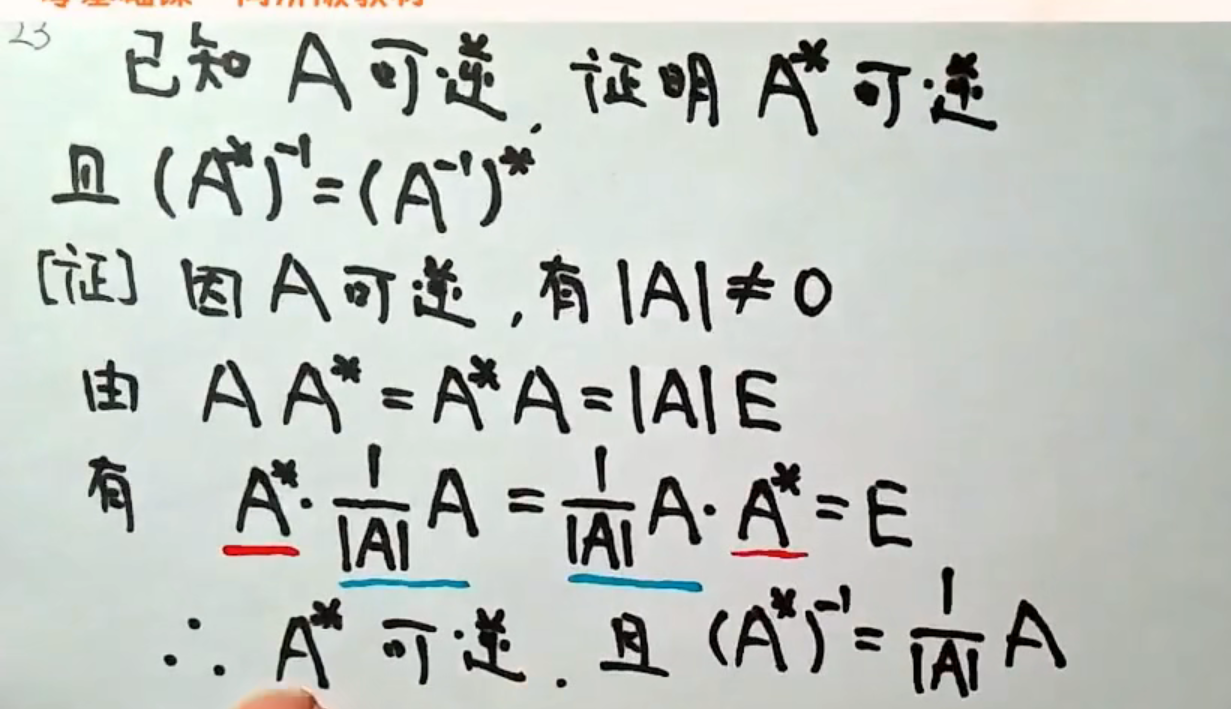 零基础课 高清版教材
23 已知 A 可逆, 证明 A* 可逆
且 (A*)⁻¹=(A⁻¹)*
[证] 因 A 可逆,有 |A| ≠ 0
由 A A* = A* A = |A| E
有 A*· 1/|A| A = 1/|A| A· A* = E
∴ A* 可逆. 且 (A*)⁻¹ = 1/|A| A